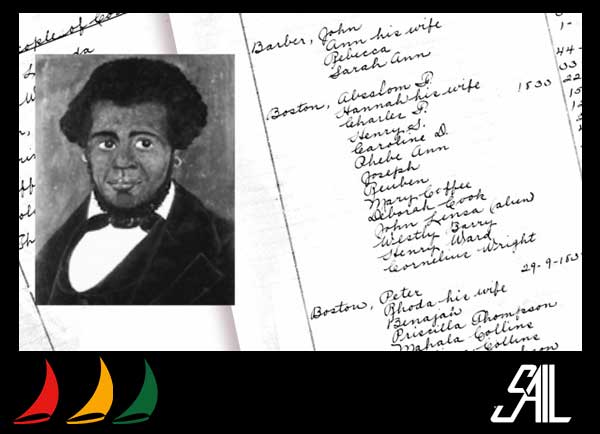 Barber, John
Ann his wife
Rebecca
Sarah Ann
Boston, Absalom F.
Hannah his wife 1833
Charles F.
Henry S.
Caroline D.
Phebe Ann
Joseph
Reuben
Mary Coffee
Deborah Cook
John Lensa (alien)
Westly Barry
Henry Ward
Cornelius Wright
Boston, Peter
Rhoda his wife
Benajah
Priscilla Thompson
Mahala Collins
Collins
44-
33
22
SAIL